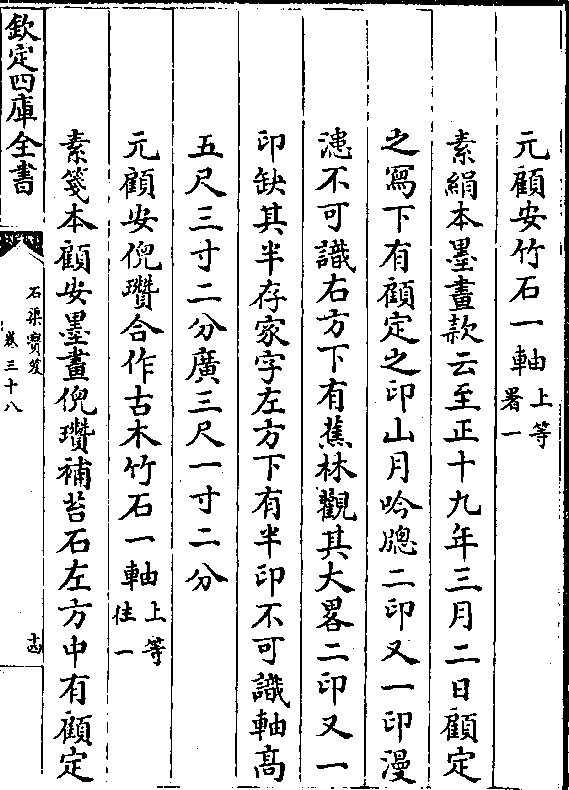 元顧安竹石一軸上等
署一
素絹本墨畫款云至正十九年三月二日顧定
之寫下有顧定之印山月吟牎二印又一印漫
漶不可識右方下有蕉林觀其大畧二印又一
印缺其半存家字左方下有半印不可識軸高
五尺三寸二分廣三尺一寸二分
元顧安倪瓚合作古木竹石一軸上等
住一
素箋本顧安墨畫倪瓚補苔石左方中有顧定
欽定四庫全書
石渠寶笈
卷三十八
十四